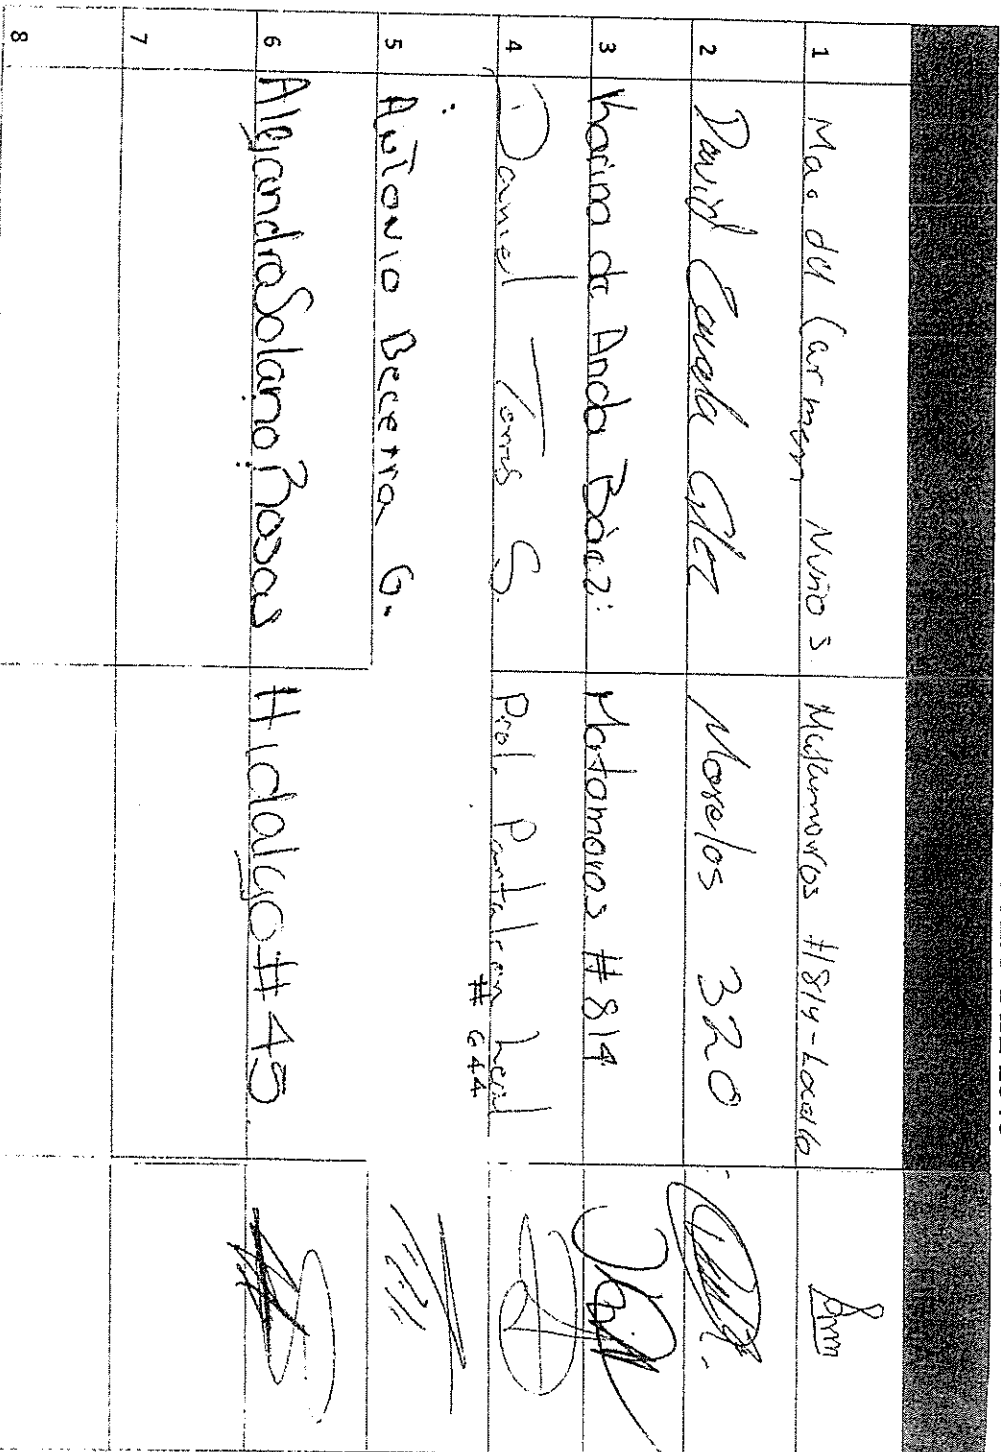 1 Ma. del Carmen Nuño S. Matamoros #814-Local 6
2 David Zavala Glez Morelos 320
3 Karina de Anda Báez Matamoros #814
4 Daniel Torres S. Prol. Pantaleon Leal
#644
5 Antonio Becerra G.
6 Alejandra Solano Rosas Hidalgo #45
7
8